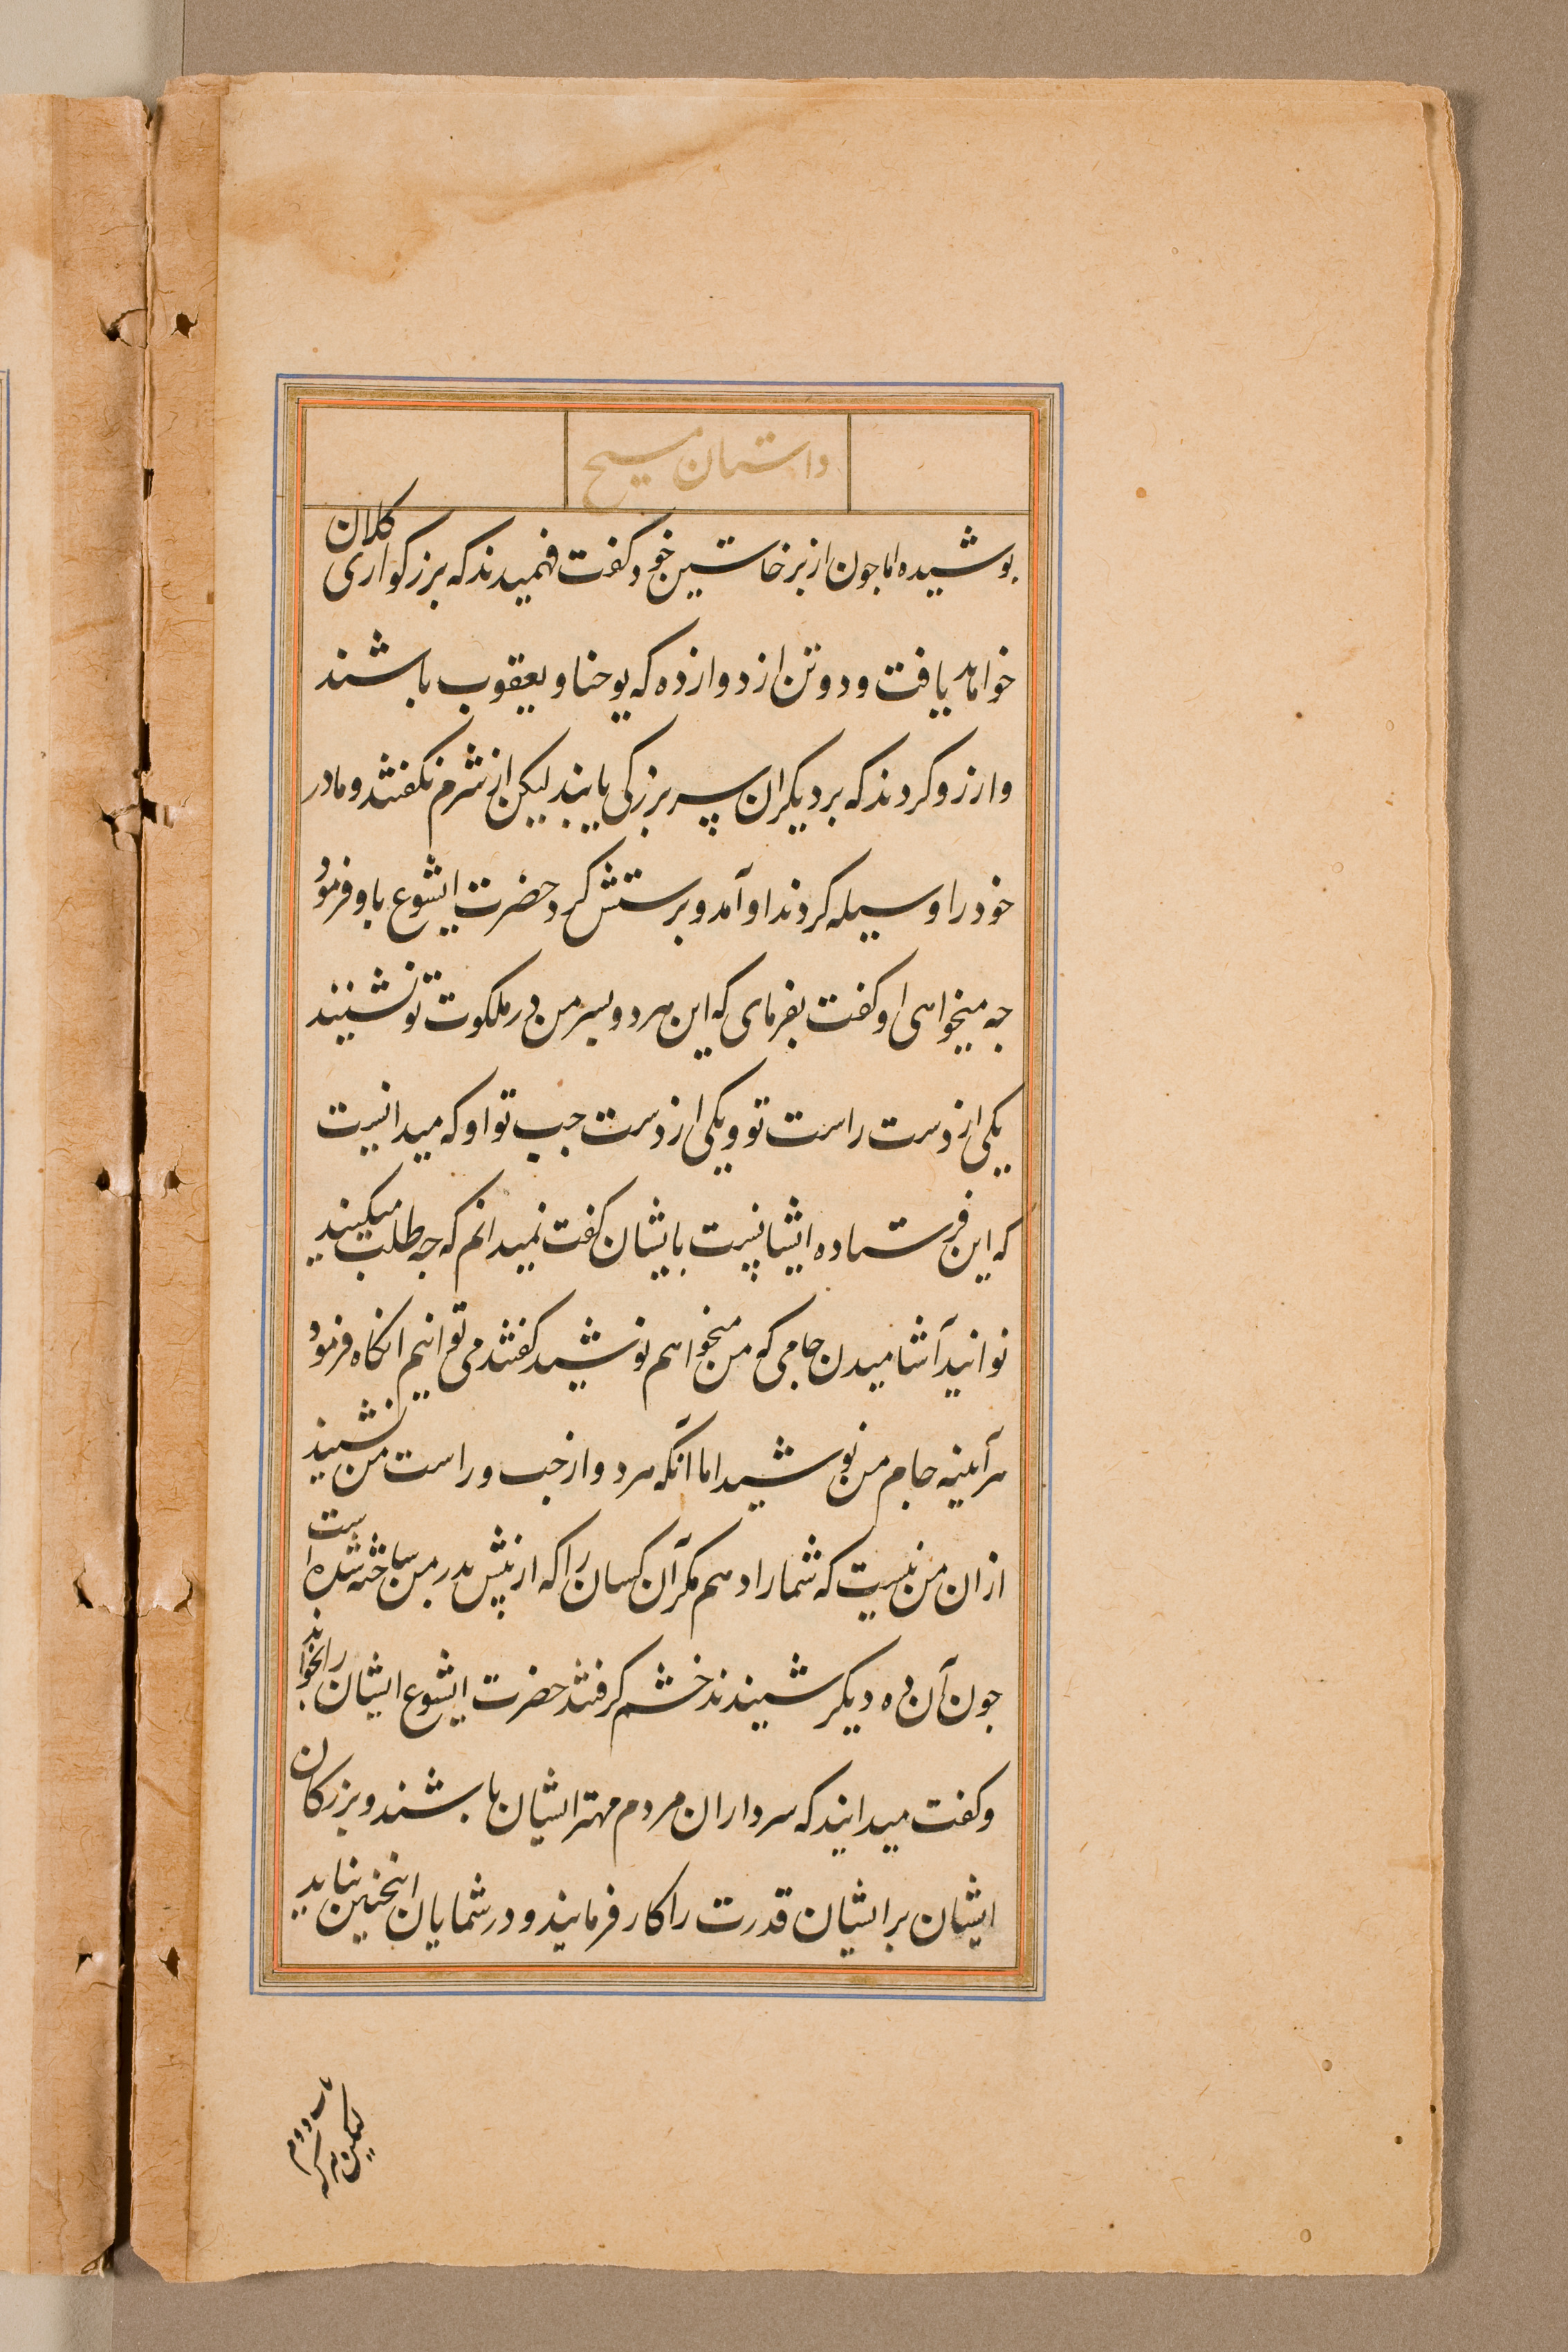 داستان مسیح
بوشیده اما جون از برخاستین خود کفت فهمیدند که بزرکواری کلان
خواهد یافت و دو تن از دوازده که یوحنا و یعقوب باشند
وارزو کردند که بر دیکران سر بزرکی یابند لیکن از شرم نکفتند و مادر
خود را وسیله کردند او آمد و برستش کرد حضرت ایشوع باو فرمود
جه میخواهی او کفت بفرمای که این هر دو بسر من در ملکوت تو نشینند
یکی از دست راست تو و یکی از دست جب تو او که میدانیست
که این فرستاده ایشانیست بایشان کفت نمیدانم که جه طلب میکنید
توانید آشامیدن جامی که من میخواهم نوشید کفتند می توانیم انکاه فرمود
هرآینه جام من نوشید اما آنکه هر دو از جب و راست من نشیند
از ان من نیست که شما را دهم مکر آن کسان را که از پیش بدر من ساخته شده است
جون آن ده دیکر شنیدند خشم کرفتند حضرت ایشوع ایشان را بخواند
و کفت میدانید که سرداران مردم مهتر ایشان باشند و بزرکان
ایشان بر ایشان قدرت را کار فرمایند و در شمایان اینچنین نباید
لیکن هر که